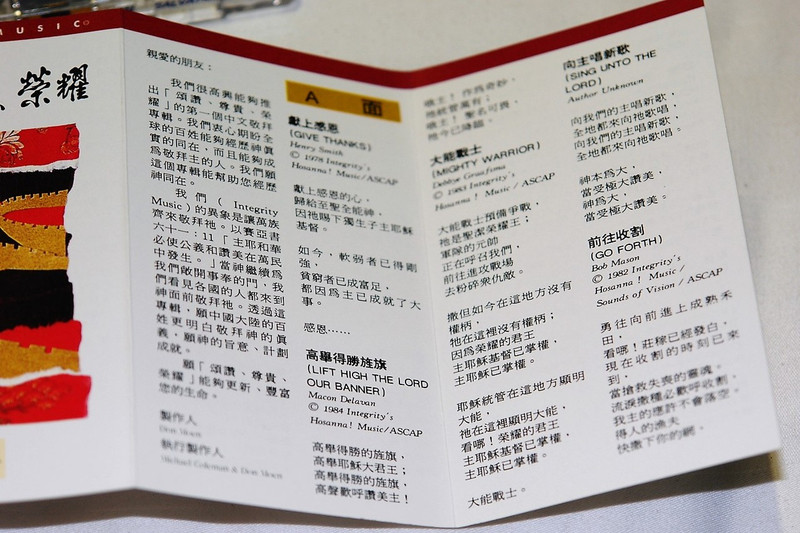 MUSIC
榮耀
親愛的朋友：
我們很高興能夠推
出「頌讚、尊貴、榮
耀」的第一個中文敬拜
專輯。我們衷心期盼全
球的百姓能夠經歷神真
實的同在，而且能夠成
為敬拜主的人。我們願
這個專輯能幫助您經歷
神同在。
我們（Integrity
Music）的異象是讓萬族
齊來敬拜祂。以賽亞書
六十一：11「主耶和華
必使公義和讚美在萬民
中發生。」當神繼續為
我們敞開事奉的門，我
們看見各國的人都來到
神面前敬拜祂。透過這
專輯，願中國大陸的百
姓更明白敬拜神的真
義，願神的旨意、計劃
成就。
願「頌讚、尊貴、
榮耀」能夠更新、豐富
您的生命。
製作人
Don Moen
執行製作人
Michael Coleman & Don Moen
A 面
獻上感恩
(GIVE THANKS)
Henry Smith
© 1978 Integrity's
Hosanna! Music/ASCAP
獻上感恩的心，
歸給至聖全能神，
因祂賜下獨生子主耶穌
基督。
如今，軟弱者已得剛
強，
貧窮者已成富足，
都因為主已成就了大
事。
感恩……
高舉得勝旌旗
(LIFT HIGH THE LORD
OUR BANNER)
Macon Delavan
© 1984 Integrity's
Hosanna! Music/ASCAP
高舉得勝的旌旗，
高舉耶穌大君王；
高舉得勝的旌旗，
高聲歡呼讚美主！
哦主！作為奇妙，
祂統管萬有；
哦主！聖名可畏，
祂今已降臨。
大能戰士
(MIGHTY WARRIOR)
Debbye Graafsma
© 1983 Integrity's
Hosanna! Music / ASCAP
大能戰士預備爭戰，
祂是聖潔榮耀王；
軍隊的元帥
正在呼召我們，
前往進攻戰場
去粉碎眾仇敵。
撒但如今在這地方沒有
權柄，
牠在這裡沒有權柄；
因為榮耀的君王
主耶穌基督已掌權，
主耶穌已掌權。
耶穌統管在這地方顯明
大能，
祂在這裡顯明大能，
看哪！榮耀的君王
主耶穌基督已掌權，
主耶穌已掌權。
大能戰士。
向主唱新歌
(SING UNTO THE
LORD)
Author Unknown
向我們的主唱新歌，
全地都來向祂歌唱，
向我們的主唱新歌，
全地都來向祂歌唱。
神本為大，
當受極大讚美，
神為大，
當受極大讚美。
前往收割
(GO FORTH)
Bob Mason
© 1982 Integrity's
Hosanna! Music /
Sounds of Vision / ASCAP
勇往向前進上成熟禾
田，
看哪！莊稼已經發白，
現在收割的時刻已來
到，
當搶救失喪的靈魂。
流淚撒種必歡呼收割，
我主的應許不會落空，
得人的漁夫
快撒下你的網。